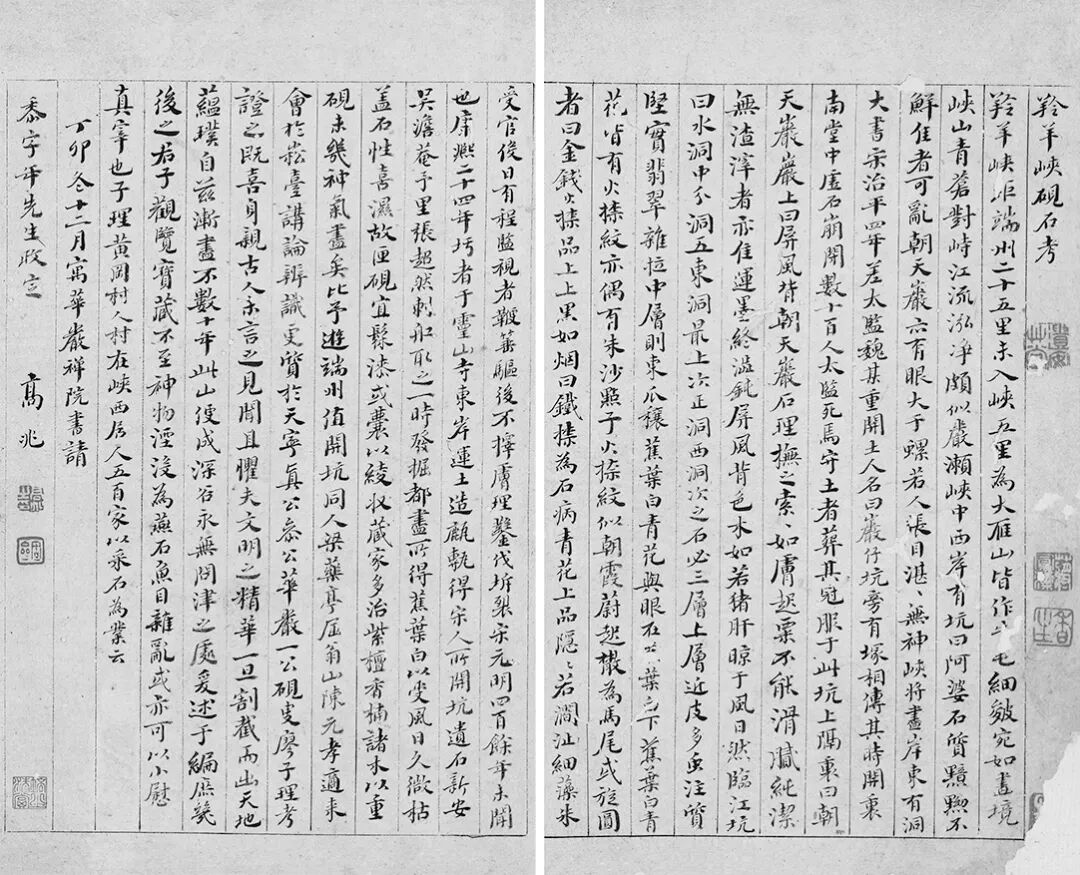 羚羊峽硯石考
羚羊峽距端州二十五里未入峽五里為大雁山皆作牛毛細皴宛如畫境
峽山青蒼對峙江流泓淨頗似嚴瀨峽中西岸有坑曰阿婆石質黯黝不
鮮佳者可亂朝天巖亦有眼大于螺若人張目湛〻無神峽將盡岸東有洞
大書宋治平四年差太監魏某重開土人名曰巖仔坑旁有塚相傳其時開裏
南堂中虛石崩開數十百人太監死焉守土者葬其冠服于此坑上隔裏曰朝
天巖巖上曰屏風背朝天巖石理撫之索〻如膚起粟不能滑膩純潔
無渣滓者亦佳運墨終澀鈍屏風背色水如若猪肝晾于風日然臨江坑
曰水洞中分洞五東洞最上次正洞西洞次之石必三層上層近皮多虫注質
堅實翡翠雜拉中層則東瓜穰蕉葉白青花與眼在焉葉白下蕉葉白青
花皆有火捺紋亦偶有朱沙點子火捺紋似朝霞蔚起散為馬尾或旋圓
者曰金錢火捺品上上黑如烟曰鐵捺為石病青花上品隱〻若澗沚細藻朱
受官役日有程監視者鞭箠驅後不擇膚理鑿伐斨裂宋元明四百餘年未開
也康熙二十四年圬者于靈山寺東岸運土造瓻甎得宋人所開坑遺石新安
吳澹菴予里張超然刺舟取之一時發掘都盡所得蕉葉白以受風日久微枯
蓋石性喜濕故匣硯宜髹漆或囊以綾收藏家多治紫檀香楠諸木以重
硯未幾神氣盡矣比予遊端州值開坑同人梁藥亭屈翁山陳元孝適來
會於崧臺講論辨識更質於天寧真公叅公華嚴一公硯叟廖子理考
證之既喜身親古人未言之見聞且懼夫文明之精華一旦割截而出天地
蘊璞自茲漸盡不數十年此山便成深谷永無問津之處爰述于編庶幾
後之君子觀覽寶藏不至神物湮沒為燕石魚目雜亂或亦可以小慰
真宰也子理黃岡村人村在峽西居人五百家以采石為業云
丁卯冬十二月寓華嚴禪院書請
黍字年先生政定
高兆